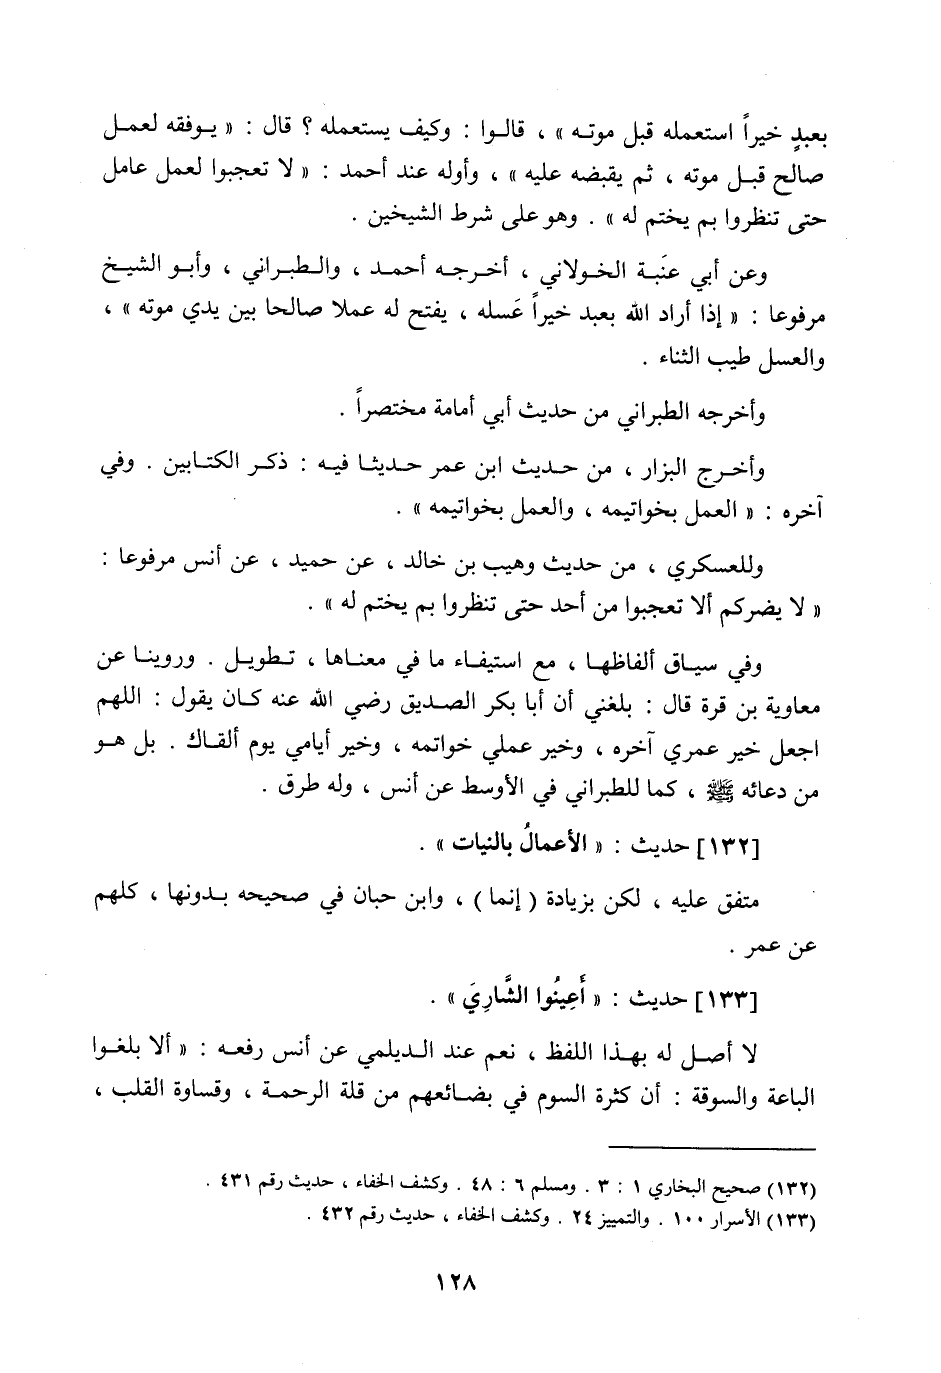 بعبدٍ خيراً استعمله قبل موتـه » ، قالـوا : وكيف يستعمله ؟ قال : « يـوفقه لعمـل
صالح قبـل موته ، ثم يقبضه عليه » ، وأوله عند أحمد : « لا تعجبوا لعمل عامل
حتى تنظروا بم يختم له » . وهو على شرط الشيخين .
وعن أبي عنَبة الخـولاني ، أخـرجه أحمـد ، والـطبـراني ، وأبـو الشيـخ
مرفوعا : « إذا أراد الله بعبد خيراً عَسله ، يفتح له عملا صالحا بين يدي موته » ،
والعسل طيب الثناء .
وأخرجه الطبراني من حديث أبي أمامة مختصراً .
وأخـرج البزار ، من حـديث ابن عمر حـديثـا فيـه : ذكـر الكتـابين . وفي
آخره : « العمل بخواتيمه ، والعمل بخواتيمه » .
وللعسكري ، من حديث وهيب بن خالد ، عن حميد ، عن أنس مرفوعا :
« لا يضركم ألا تعجبوا من أحد حتى تنظروا بم يختم له » .
وفي سيـاق ألفاظهـا ، مع استيفـاء ما في معنـاها ، تـطويـل . وروينـا عن
معاوية بن قرة قال : بلغني أن أبا بكر الصـديق رضي الله عنه كـان يقول : اللهم
اجعل خير عمري آخره ، وخير عملي خواتمه ، وخير أيامي يوم ألقـاك . بل هـو
من دعائه ﷺ ، كما للطبراني في الأوسط عن أنس ، وله طرق .
[١٣٢] حديث : « الأعمالُ بالنيات » .
متفق عليه ، لكن بزيادة ( إنما ) ، وابن حبان في صحيحه بـدونها ، كلهم
عن عمر .
[١٣٣] حديث : « أَعِينُوا الشَّارِيَ » .
لا أصـل له بهـذا اللفظ ، نعم عند الـديلمي عن أنس رفعـه : « ألا بلغـوا
الباعة والسوقة : أن كثرة السوم في بضـائعهم من قلة الرحمـة ، وقساوة القلب ،
(١٣٢) صحيح البخاري ١ : ٣ . ومسلم ٦ : ٤٨ . وكشف الخفاء ، حديث رقم ٤٣١ .
(١٣٣) الأسرار ١٠٠ . والتمييز ٢٤ . وكشف الخفاء ، حديث رقم ٤٣٢ .
١٢٨